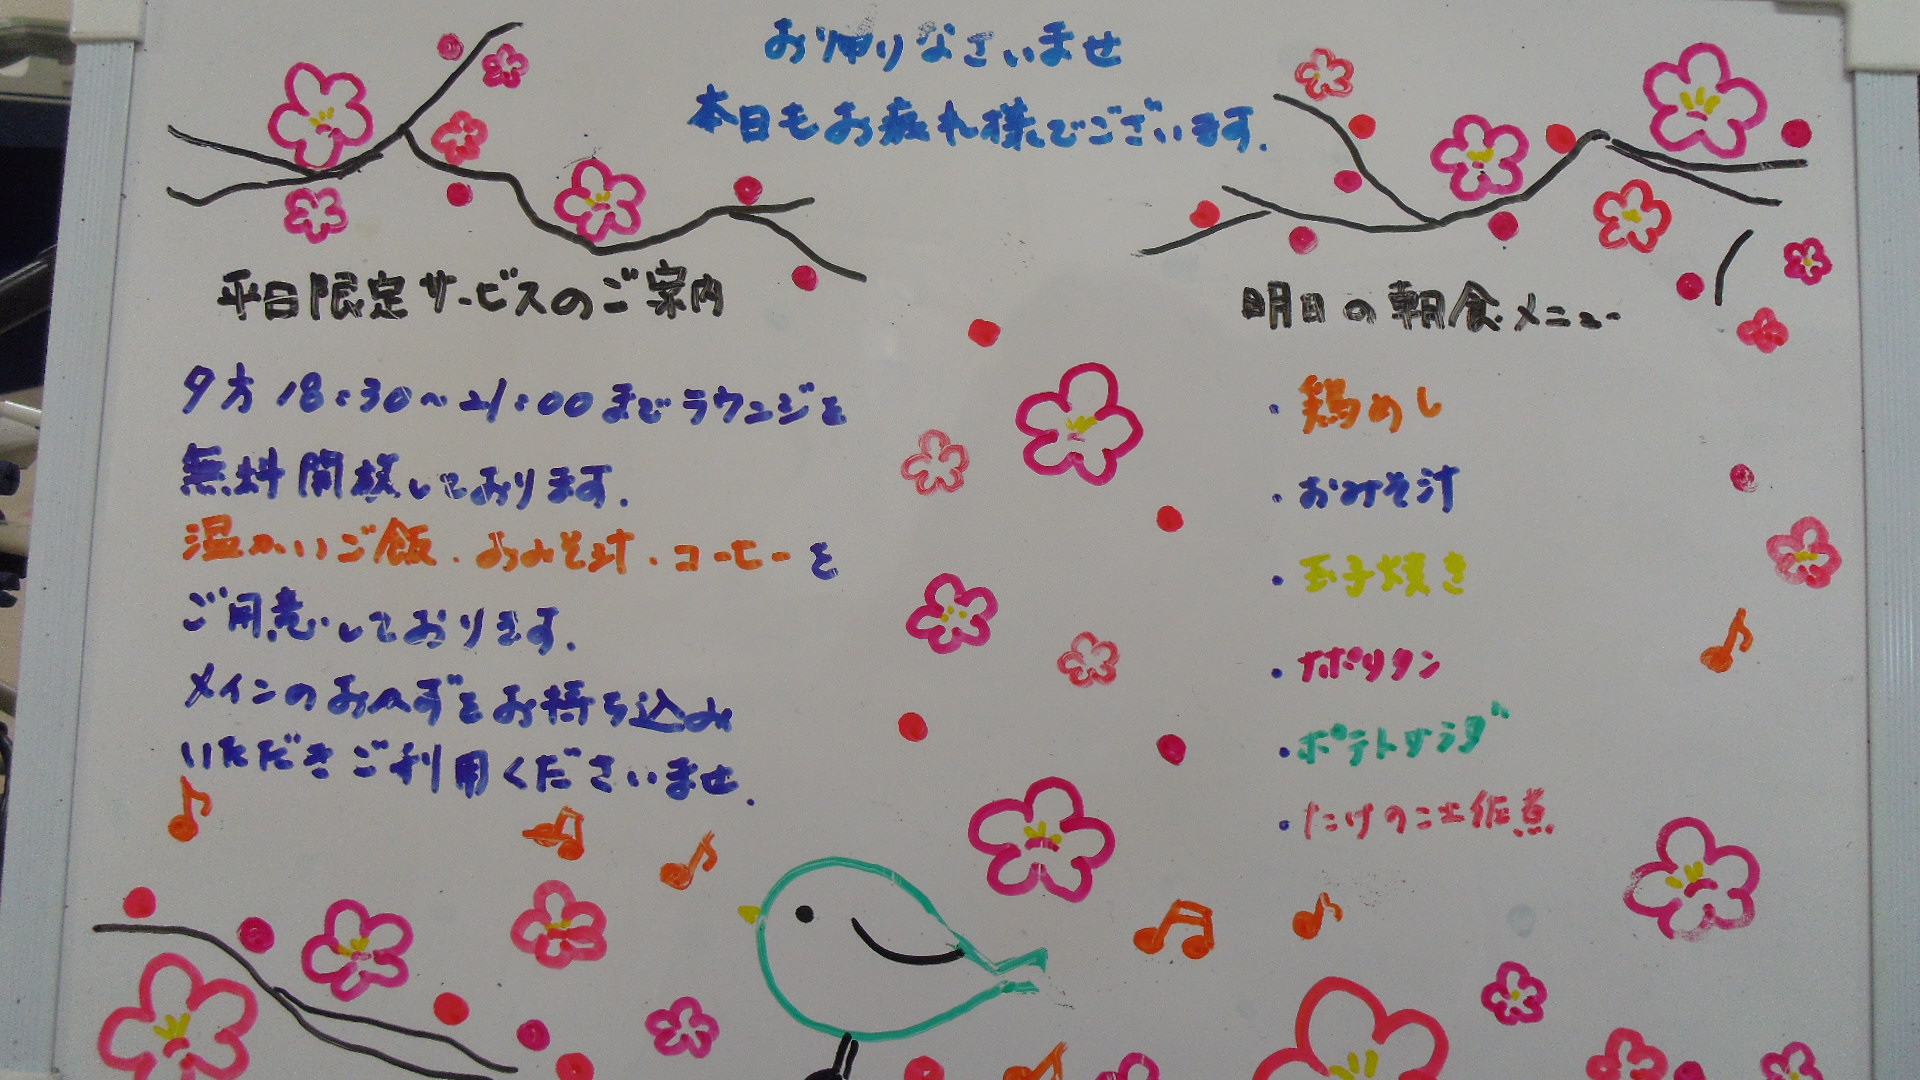 お帰りなさいませ
本日もお疲れ様でございます.
平日限定サービスのご案内
夕方18:30～21:00までラウンジを
無料開放しております.
温かいご飯.おみそ汁.コーヒーを
ご用意しております.
メインのおかずをお持ち込み
いただきご利用くださいませ.
明日の朝食メニュー
・鶏めし
・おみそ汁
・玉子焼き
・ナポリタン
・ポテトサラダ
・たけのこ土佐煮